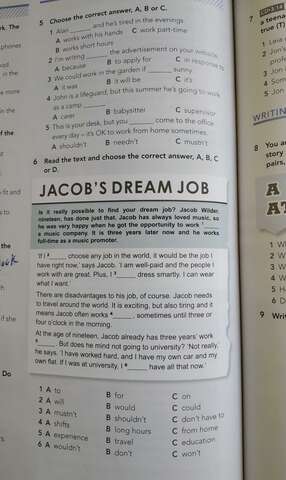 5 Choose the correct answer, A, B or C.
1 Alan ______ and he's tired in the evenings.
A works with his hands C work part-time
B works short hours
2 I'm writing ______ the advertisement on your website.
A because B to apply for C in response to
3 We could work in the garden if ______ sunny.
A it was B it will be C it's
4 John is a lifeguard, but this summer he's going to work
as a camp ______.
A carer B babysitter C supervisor
5 This is your desk, but you ______ come to the office
every day – it's OK to work from home sometimes.
A shouldn't B needn't C mustn't
6 Read the text and choose the correct answer, A, B, C
or D.
JACOB'S DREAM JOB
Is it really possible to find your dream job? Jacob Wilder,
nineteen, has done just that. Jacob has always loved music, so
he was very happy when he got the opportunity to work ¹______
a music company. It is three years later now and he works
full-time as a music promoter.
'If I ²______ choose any job in the world, it would be the job I
have right now,' says Jacob. 'I am well-paid and the people I
work with are great. Plus, I ³______ dress smartly. I can wear
what I want.'
There are disadvantages to his job, of course. Jacob needs
to travel around the world. It is exciting, but also tiring and it
means Jacob often works ⁴______, sometimes until three or
four o'clock in the morning.
At the age of nineteen, Jacob already has three years' work
⁵______. But does he mind not going to university? 'Not really,'
he says. 'I have worked hard, and I have my own car and my
own flat. If I was at university, I ⁶______ have all that now.'
1 A to B for C on
2 A will B would C could
3 A mustn't B shouldn't C don't have to
4 A shifts B long hours C from home
5 A experience B travel C education
6 A wouldn't B don't C won't
k. The
phones
in the
of the
fit and
the
if she
Do
7
A teena
true (T)
1 Leia
2 Jon's
3 Jon
4 Som
5 Jon
WRITIN
8 You a
story
pairs,
A
AT
1 W
2 W
3 W
4 W
5 H
6 D
9 Wri